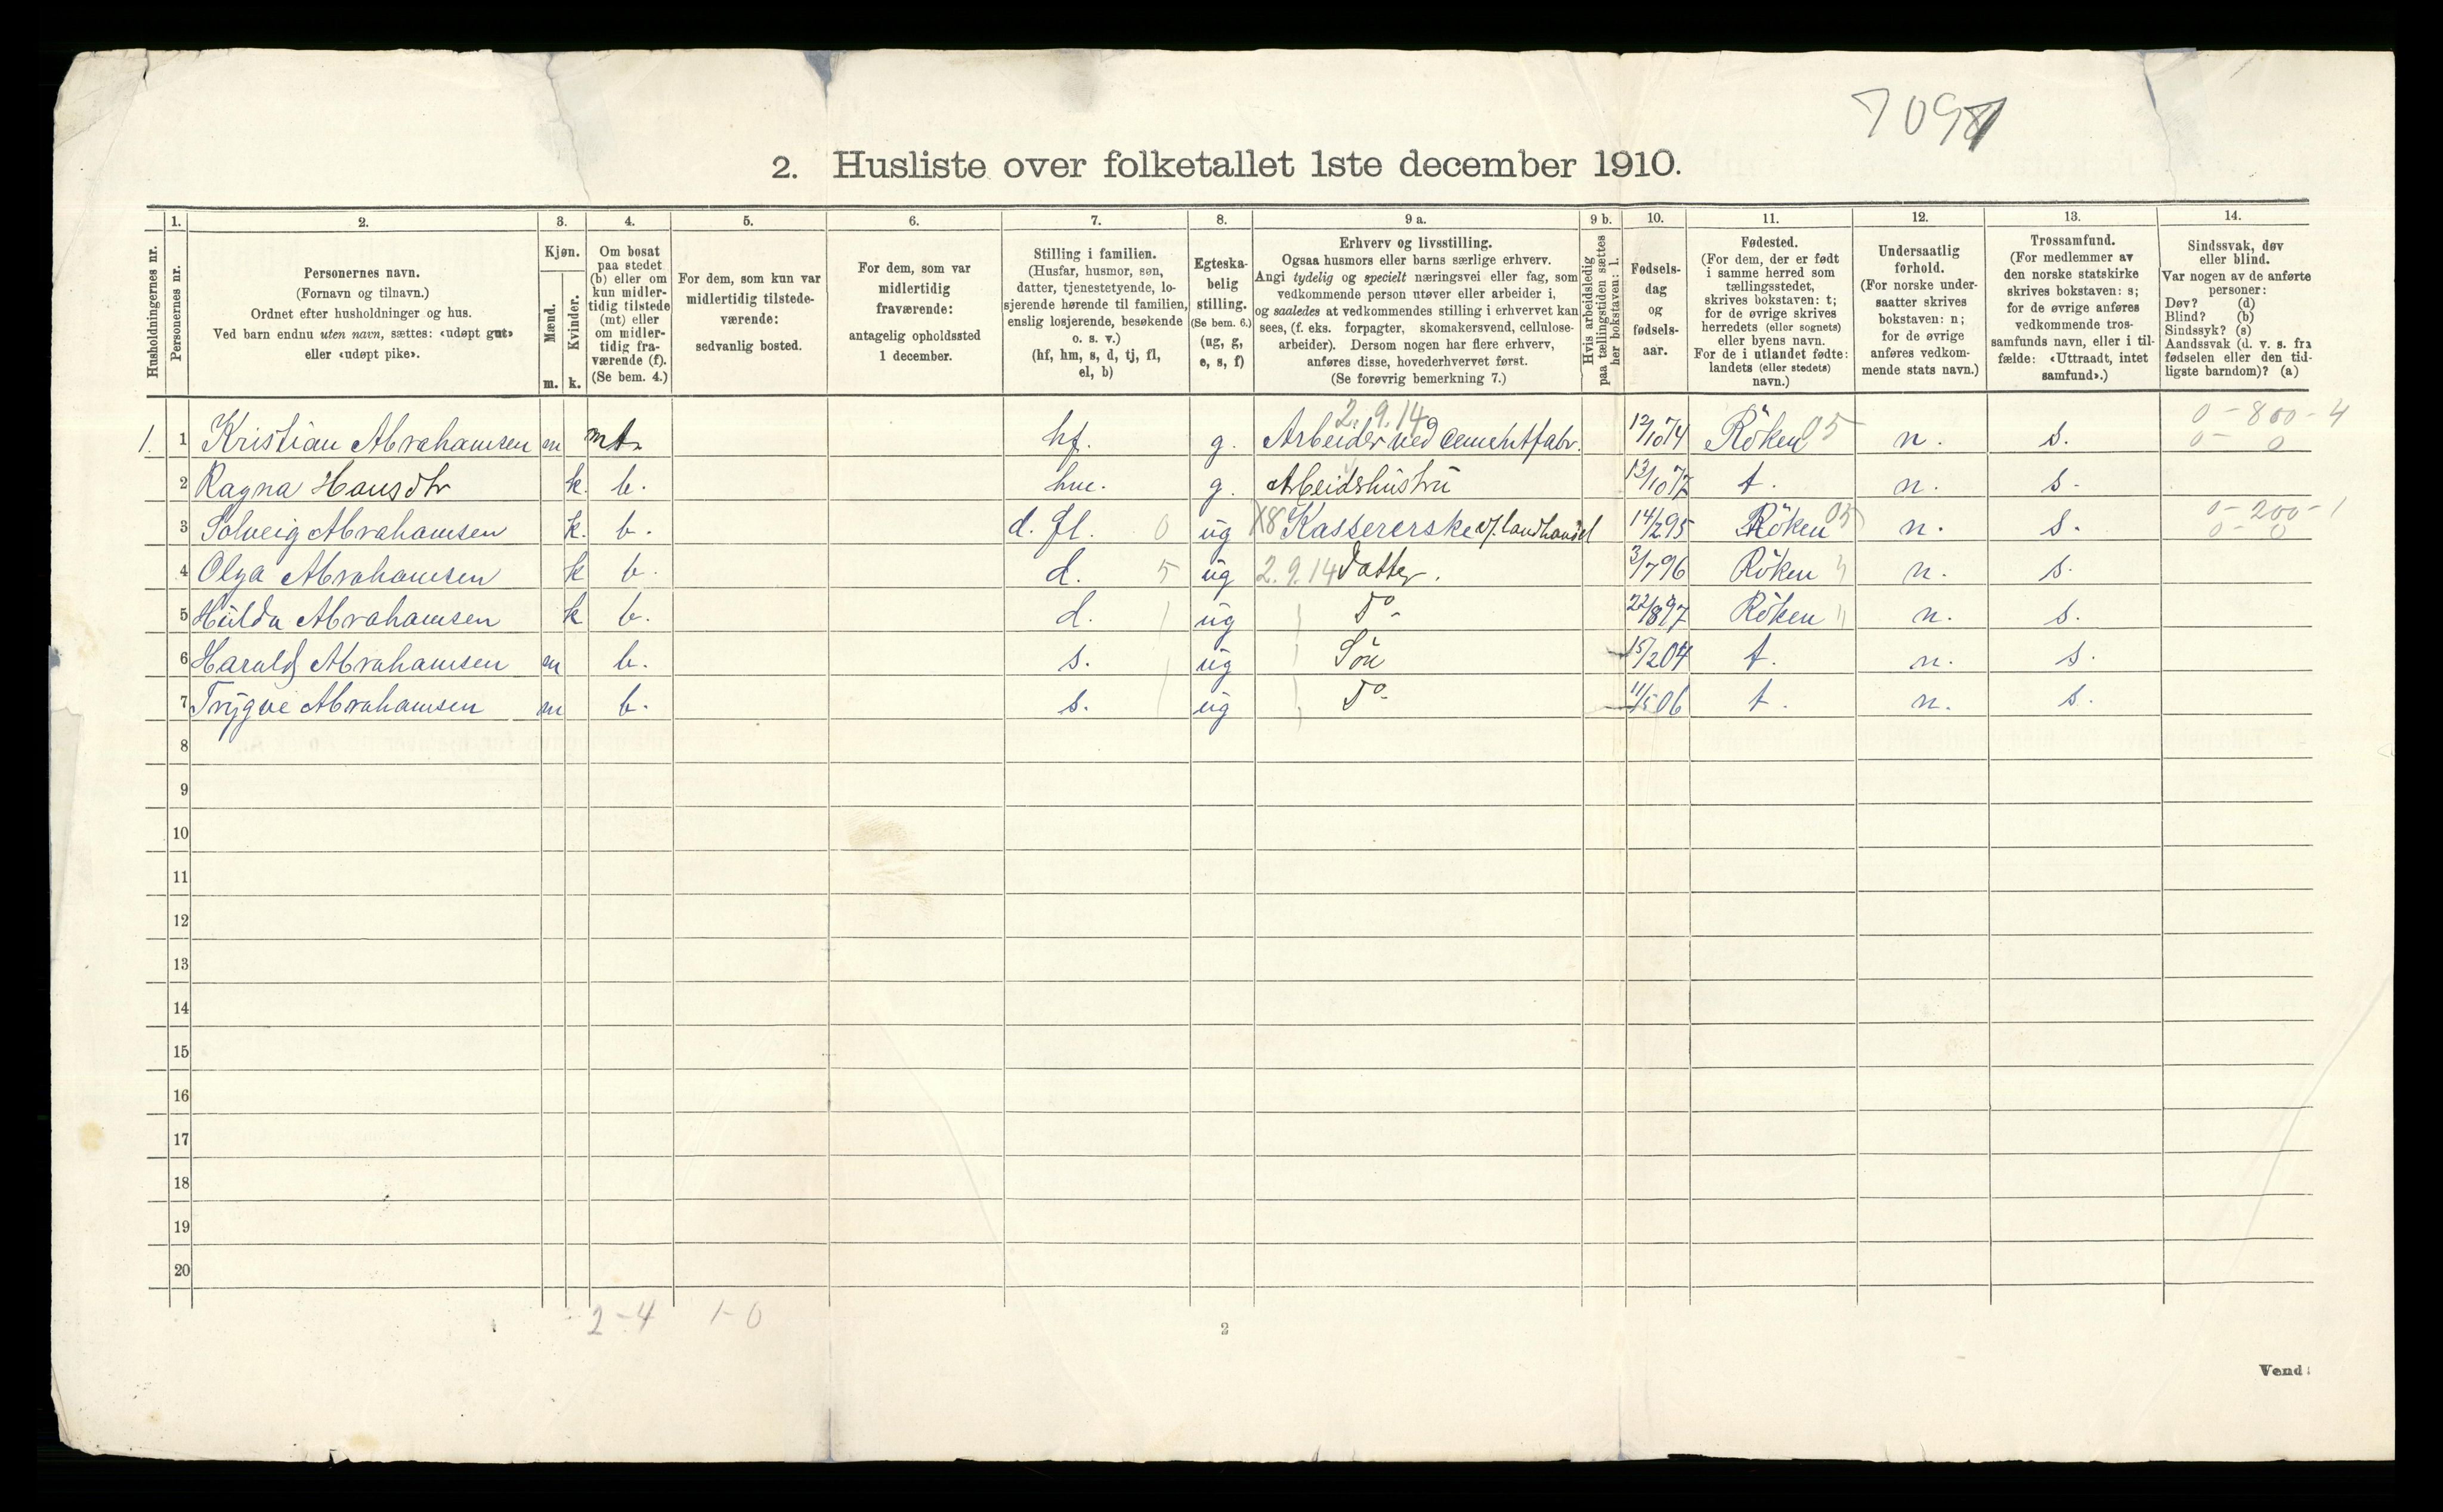 2. Husliste over folketallet 1ste december 1910.
1. 2. 3. 4. 5. 6. 7. 8. 9 a. 9 b. 10. 11. 12. 13. 14.
Husholdningernes nr.
Personernes nr.
Personernes navn.
(Fornavn og tilnavn.)
Ordnet efter husholdninger og hus.
Ved barn endnu uten navn, sættes: «udøpt gut»
eller «udøpt pike».
Kjøn.
Mænd.
Kvinder.
m. k.
Om bosat
paa stedet
(b) eller om
kun midler-
tidig tilstede
(mt) eller
om midler-
tidig fra-
værende (f).
(Se bem. 4.)
For dem, som kun var
midlertidig tilstede-
værende:
sedvanlig bosted.
For dem, som var
midlertidig
fraværende:
antagelig opholdssted
1 december.
Stilling i familien.
(Husfar, husmor, søn,
datter, tjenestetyende, lo-
sjerende hørende til familien,
enslig losjerende, besøkende
o. s. v.)
(hf, hm, s, d, tj, fl,
el, b)
Egteska-
belig
stilling.
(Se bem. 6.)
(ug, g,
e, s, f)
Erhverv og livsstilling.
Ogsaa husmors eller barns særlige erhverv.
Angi tydelig og specielt næringsvei eller fag, som
vedkommende person utøver eller arbeider i,
og saaledes at vedkommendes stilling i erhvervet kan
sees, (f. eks. forpagter, skomakersvend, cellulose-
arbeider). Dersom nogen har flere erhverv,
anføres disse, hovederhvervet først.
(Se forøvrig bemerkning 7.)
Hvis arbeidsledig
paa tællingstiden sættes
her bokstaven: l.
Fødsels-
dag
og
fødsels-
aar.
Fødested.
(For dem, der er født
i samme herred som
tællingsstedet,
skrives bokstaven: t;
for de øvrige skrives
herredets (eller sognets)
eller byens navn.
For de i utlandet fødte:
landets (eller stedets)
navn.)
Undersaatlig
forhold.
(For norske under-
saatter skrives
bokstaven: n;
for de øvrige
anføres vedkom-
mende stats navn.)
Trossamfund.
(For medlemmer av
den norske statskirke
skrives bokstaven: s;
for de øvrige anføres
vedkommende tros-
samfunds navn, eller i til-
fælde: «Uttraadt, intet
samfund».)
Sindssvak, døv
eller blind.
Var nogen av de anførte
personer:
Døv? (d)
Blind? (b)
Sindssyk? (s)
Aandssvak (d. v. s. fra
fødselen eller den tid-
ligste barndom)? (a)
2.9.14 0 - 800 - 4
1. 1 Kristian Abrahamsen m mt. hf. g. Arbeider ved cementfabr. Röken 05 n. s. 0 - 0
2 Ragna Hansdtr k. b. hm. g. Arbeidshustru 13/10 72 t. n. s.
3 Solveig Abrahamsen k. b. d. fl. 0 ug X8 Kassererske v/landhandel 14/2 95 Röken 05 n. s. 0 - 200 - 1
0 - 0
4 Olga Abrahamsen k b. d. 5 ug 2.9.14 Datter. 3/7 96 Röken " n. s.
5 Hulda Abrahamsen k b. d. ug Do 22/8 97 Röken " n. s.
6 Harald Abrahamsen m b. s. ug Sön 15/2 04 t. n. s.
7 Trygve Abrahamsen m b. s. ug Do 11/5 06 t. n. s.
8
9
10
11
12
13
14
15
16
17
18
19
20
2 - 4 1 - 0
2
Vend!